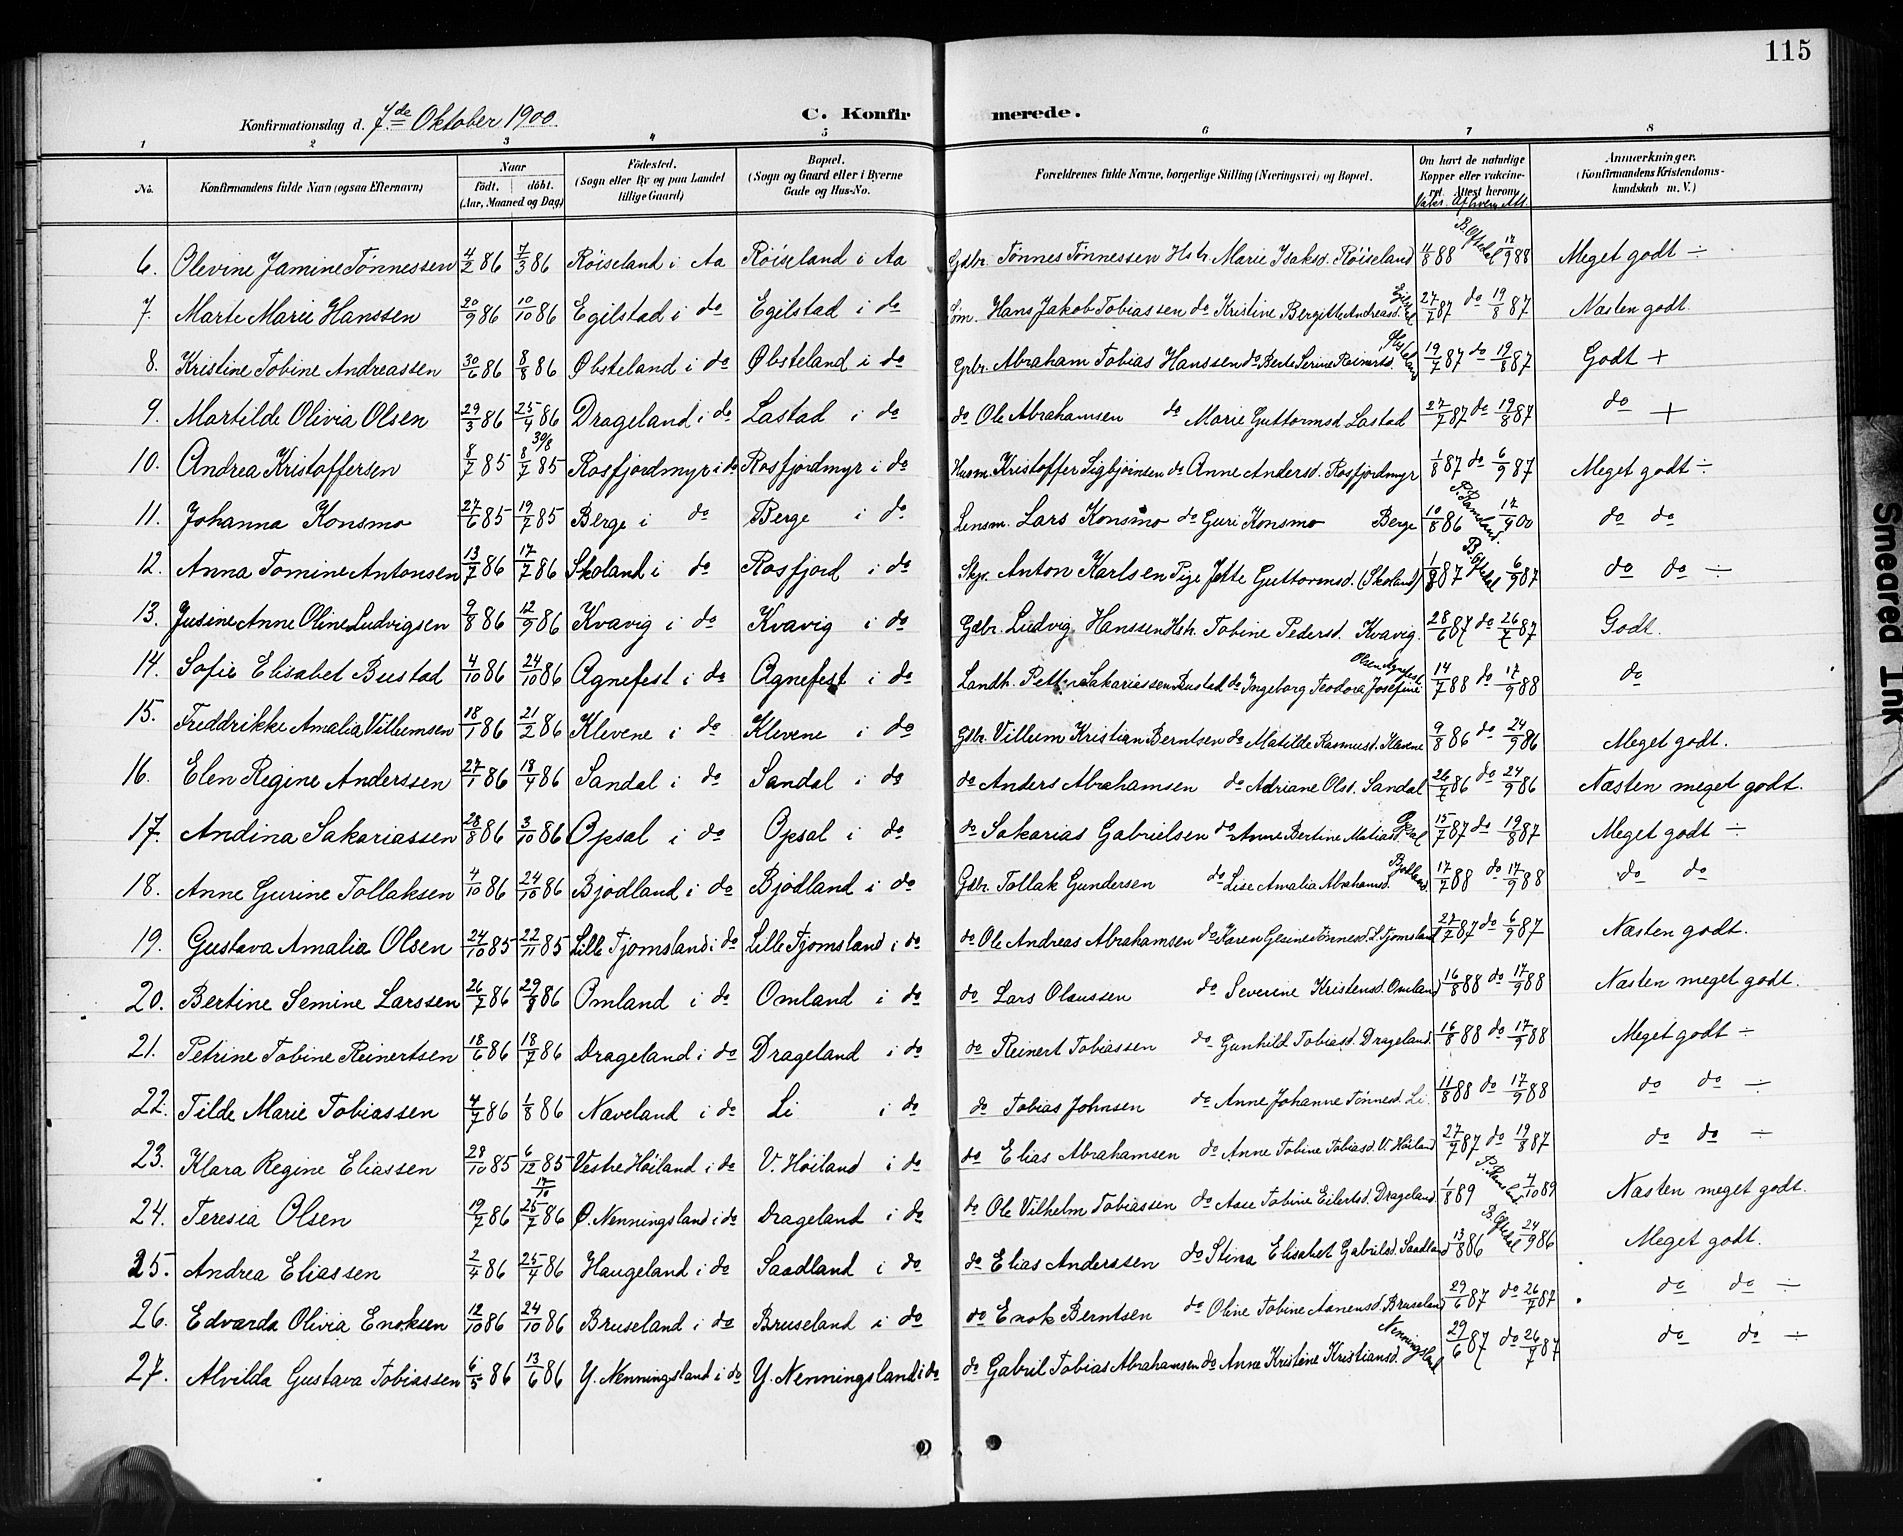 115
Konfirmationsdag d. 7de Oktober 1900. C. Konfirmerede.
1 2 3 4 5 6 7 8
No. Konfirmandens fulde Navn (ogsaa Efternavn) Naar født. døbt. (Aar, Maaned og Dag) Fødested. (Sogn eller By og paa Landet tillige Gaard) Bopæl. (Sogn og Gaard eller i Byerne Gade og Hus-No. Forældrenes fulde Navne, borgerlige Stilling (Næringsvei) og Bopæl. Om havt de naturlige Kopper eller vaccineret. Attest herom. Anmærkninger. (Konfirmandens Kristendomskundskab m. V.)
6. Olevine Jamine Tønnessen 4/2 86 7/3 86 Røiseland i Aa Røiseland i Aa Gdbr. Tønnes Tønnessen Hstr. Marie Isaksd. Røiseland 11/8 88 B. Oftedal 17/9 88 Meget godt ÷
7. Marte Marie Hanssen 20/9 86 10/10 86 Egilstad i do Egilstad i do Søm. Hans Jakob Tobiassen do Kristine Bergitte Andreasd. 27/7 87 do 19/8 87 Næsten godt.
8. Kristine Tobine Andreassen 30/6 86 8/8 86 Øbsteland i do Øbsteland i do Gdbr. Abraham Tobias Hanssen do Berte Serine Reinertsd. 19/7 87 do 19/8 87 Godt +
9. Martilde Olivia Olsen 29/3 86 25/4 86 Drageland i do Lastad i do do Ole Abrahamsen do Marie Guttormsd. Lastad 27/7 87 do 19/8 87 do +
10. Andrea Kristoffersen 8/7 85 30/8 8/7 85 Rosfjordmyr i do Rosfjordmyr i do Husm. Kristoffer Sigbjørnsen do Anne Andersd. Rosfjordmyr 1/8 87 do 6/9 87 Meget godt ÷
11. Johanna Konsmo 27/6 85 19/7 85 Berge i do Berge i do Lensm. Lars Konsmo do Guri Konsmo Berge 10/8 86 17/9 00 do do
12. Anna Tomine Antonsen 13/7 86 17/7 86 Skoland i do Rosfjord i do Skpr. Anton Karlsen Pige Jette Guttormsd. (Skoland) 1/8 87 B. Oftedal 6/9 87 do do ÷
13. Jusine Anne Oline Ludvigsen 9/8 86 12/9 86 Kvavig i do Kvavig i do Gdbr. Ludvig Hanssen Hstr. Tobine Pedersd. Kvavig. 28/6 87 do 26/7 87 Godt.
14. Sofie Elisabet Bustad 4/10 86 24/10 86 Agnefest i do Agnefest i do Landh. Petter Sakariassen Bustad do Ingeborg Teodora Josefine Olsen Agnefest 14/7 88 do 17/9 88 do
15. Freddrikke Amalia Villumsen 18/1 86 21/2 86 Klevene i do Klevene i do Gdbr. Villum Kristian Berntsen do Matilde Rasmusd. Klevene 9/8 86 do 24/9 86 Meget godt.
16. Elen Regine Anderssen 27/1 86 18/4 86 Sandal i do Sandal i do do Anders Abrahamsen do Adriane Olsd. Sandal 26/7 86 do 24/9 86 Næsten meget godt.
17. Andina Sakariassen 28/8 86 3/10 86 Opsal i do Opsal i do do Sakarias Gabrielsen do Anne Bertine Matiasd. Opsal 15/7 87 do 19/8 87 Meget godt ÷
18. Anne Gurine Tollaksen 4/10 86 24/10 86 Bjødland i do Bjødland i do Gdbr. Tollak Gundersen do Lise Amalia Abrahamsd. Bjødland. 17/7 88 do 17/9 88 do do
19. Gustava Amalia Olsen 24/10 85 22/11 85 Lille Tjomsland i do Lille Tjomsland i do do Ole Andreas Abrahamsen do Karen Gesine Tønnesd. L. Tjomsland 27/7 87 do 6/9 87 Næsten godt.
20. Bertine Semine Larssen 26/7 86 29/8 86 Omland i do Omland i do do Lars Olaussen do Severine Kristensd. Omland 16/8 88 do 17/9 88 Næsten meget godt.
21. Petrine Tobine Reinertsen 18/6 86 18/7 86 Drageland i do Drageland i do do Reinert Tobiassen do Gunhild Tobiasd. Drageland. 16/8 88 do 17/9 88 Meget godt ÷
22. Tilde Marie Tobiassen 4/7 86 1/8 86 Naveland i do Li i do do Tobias Johnsen do Anne Johanne Tønnesd. Li. 11/8 88 do 17/9 88 do do ÷
23. Klara Regine Eliassen 28/10 85 6/12 85 Vestre Høiland i do V. Høiland i do do Elias Abrahamsen do Anne Tobine Tobiasd. V. Høiland 27/7 87 do 19/8 87 do do ÷
24. Teresia Olsen 19/7 86 17/10 25/7 86 Ø. Nenningsland i do Drageland i do do Ole Vilhelm Tobiassen do Aase Tobine Eilertsd. Drageland. 1/8 89 4/10 89 Næsten meget godt.
25. Andrea Eliassen 2/4 86 25/4 86 Haugeland i do Saadland i do do Elias Anderssen do Stina Elisabet Gabrielsd. Saadland 13/8 86 B. Oftedal 24/9 86 Meget godt.
26. Edvarda Olivia Enoksen 12/10 86 24/10 86 Bruseland i do Bruseland i do do Enok Berntsen do Oline Tobine Aanensd. Bruseland 29/6 87 do 26/7 87 do do ÷
27. Alvilda Gustava Tobiassen 6/5 86 13/6 86 Y. Nenningsland i do Y. Nenningsland i do do Gabriel Tobias Abrahamsen do Anne Kristine Kristiansd. Nenningsland 29/6 87 do 26/7 87 do do ÷
Smeared Ink